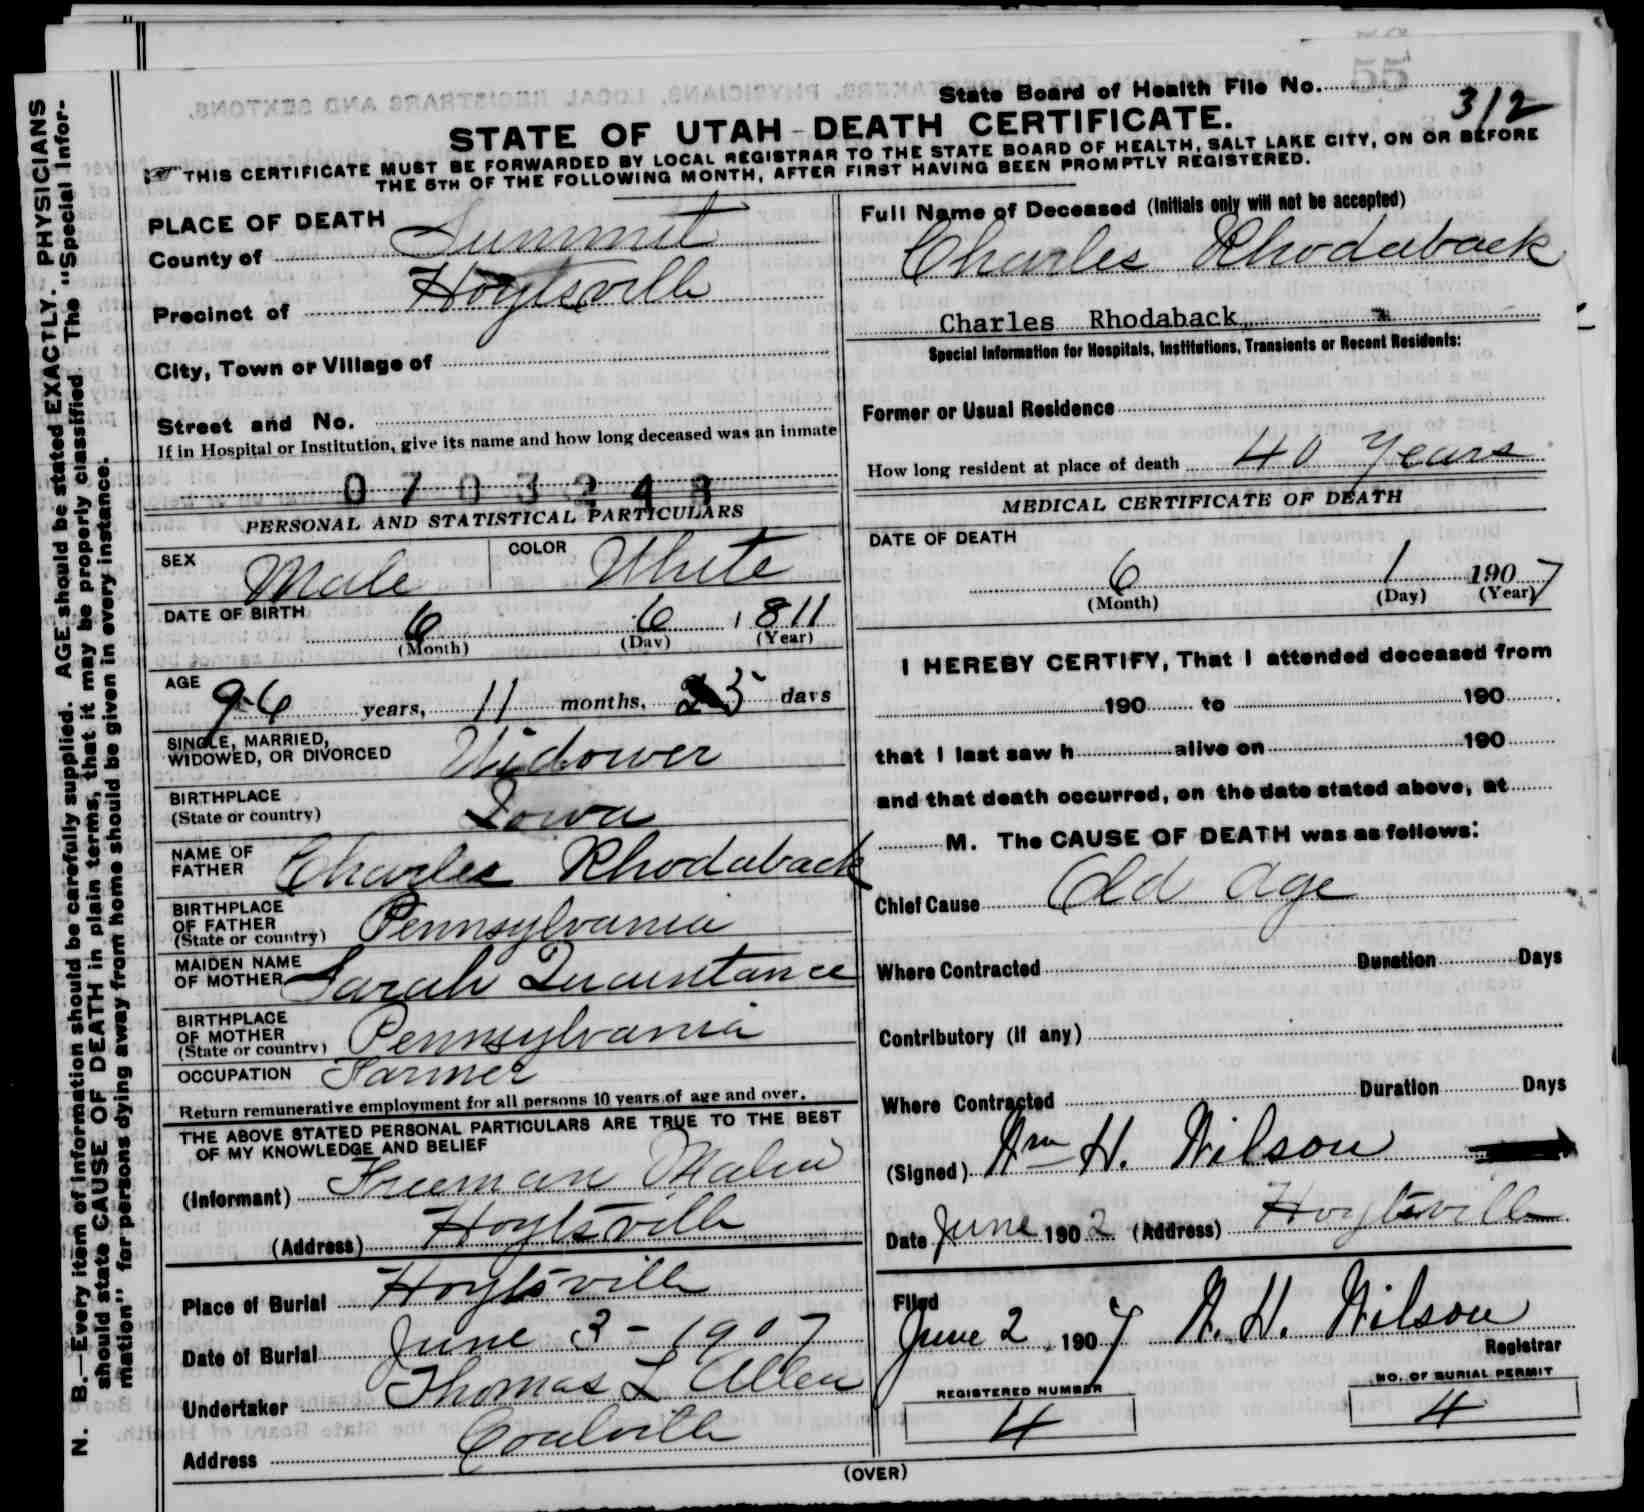 State Board of Health File No. 312
STATE OF UTAH-DEATH CERTIFICATE.
THIS CERTIFICATE MUST BE FORWARDED BY LOCAL REGISTRAR TO THE STATE BOARD OF HEALTH, SALT LAKE CITY, ON OR BEFORE
THE 5TH OF THE FOLLOWING MONTH, AFTER FIRST HAVING BEEN PROMPTLY REGISTERED.
N. B.—Every item of information should be carefully supplied. AGE should be stated EXACTLY. PHYSICIANS
should state CAUSE OF DEATH in plain terms, that it may be properly classified The "Special Infor-
mation" for persons dying away from home should be given in every instance.
PLACE OF DEATH
County of Summit
Precinct of Hoytsville
City, Town or Village of
Street and No.
If in Hospital or Institution, give its name and how long deceased was an inmate
0703248
PERSONAL AND STATISTICAL PARTICULARS
SEX Male COLOR White
DATE OF BIRTH 6 6 1811
(Month) (Day) (Year)
AGE 96 years, 11 months, 25 days
SINGLE, MARRIED,
WIDOWED, OR DIVORCED Widower
BIRTHPLACE
(State or country) Iowa
NAME OF
FATHER Charles Rhodaback
BIRTHPLACE
OF FATHER
(State or country) Pennsylvania
MAIDEN NAME
OF MOTHER Sarah Quaintance
BIRTHPLACE
OF MOTHER
(State or country) Pennsylvania
OCCUPATION Farmer
Return remunerative employment for all persons 10 years of age and over.
THE ABOVE STATED PERSONAL PARTICULARS ARE TRUE TO THE BEST
OF MY KNOWLEDGE AND BELIEF
(Informant) Freeman Malin
(Address) Hoytsville
Place of Burial Hoytsville
Date of Burial June 3-1907
Undertaker Thomas L Allen
Address Coalville
Full Name of Deceased (Initials only will not be accepted)
Charles Rhodaback
Charles Rhodaback,
Special Information for Hospitals, Institutions, Transients or Recent Residents:
Former or Usual Residence
How long resident at place of death 40 Years
MEDICAL CERTIFICATE OF DEATH
DATE OF DEATH
6 1 1907
(Month) (Day) (Year)
I HEREBY CERTIFY, That I attended deceased from
190 to 190
that I last saw h alive on 190
and that death occurred, on the date stated above, at
M. The CAUSE OF DEATH was as follows:
Chief Cause Old Age
Where Contracted Duration Days
Contributory (if any)
Where Contracted Duration Days
(Signed) Wm H. Wilson
Date June 1902 (Address) Hoytsville
Filed
June 2 1907 W. H. Wilson
Registrar
REGISTERED NUMBER
4
NO. OF BURIAL PERMIT
4
(OVER)